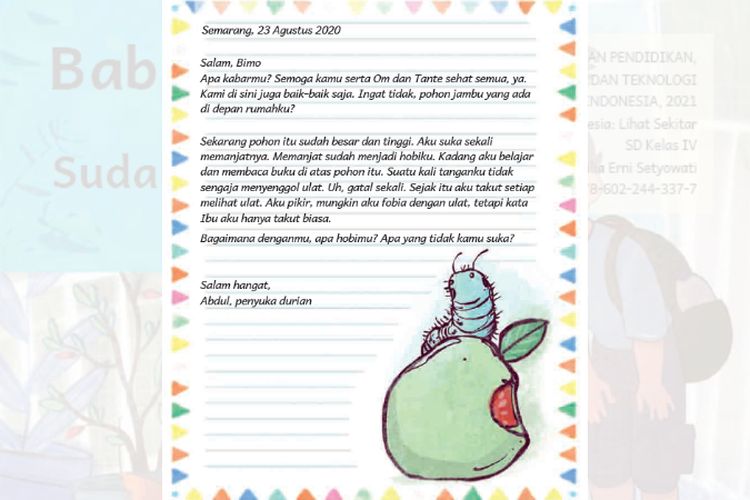 Semarang, 23 Agustus 2020
Salam, Bimo
Apa kabarmu? Semoga kamu serta Om dan Tante sehat semua, ya.
Kami di sini juga baik-baik saja. Ingat tidak, pohon jambu yang ada
di depan rumahku?
Sekarang pohon itu sudah besar dan tinggi. Aku suka sekali
memanjatnya. Memanjat sudah menjadi hobiku. Kadang aku belajar
dan membaca buku di atas pohon itu. Suatu kali tanganku tidak
sengaja menyenggol ulat. Uh, gatal sekali. Sejak itu aku takut setiap
melihat ulat. Aku pikir, mungkin aku fobia dengan ulat, tetapi kata
Ibu aku hanya takut biasa.
Bagaimana denganmu, apa hobimu? Apa yang tidak kamu suka?
Salam hangat,
Abdul, penyuka durian
Bab
Suda
AN PENDIDIKAN,
DAN TEKNOLOGI
NDONESIA, 2021
esia: Lihat Sekitar
SD Kelas IV
Erni Setyowati
-602-244-337-7